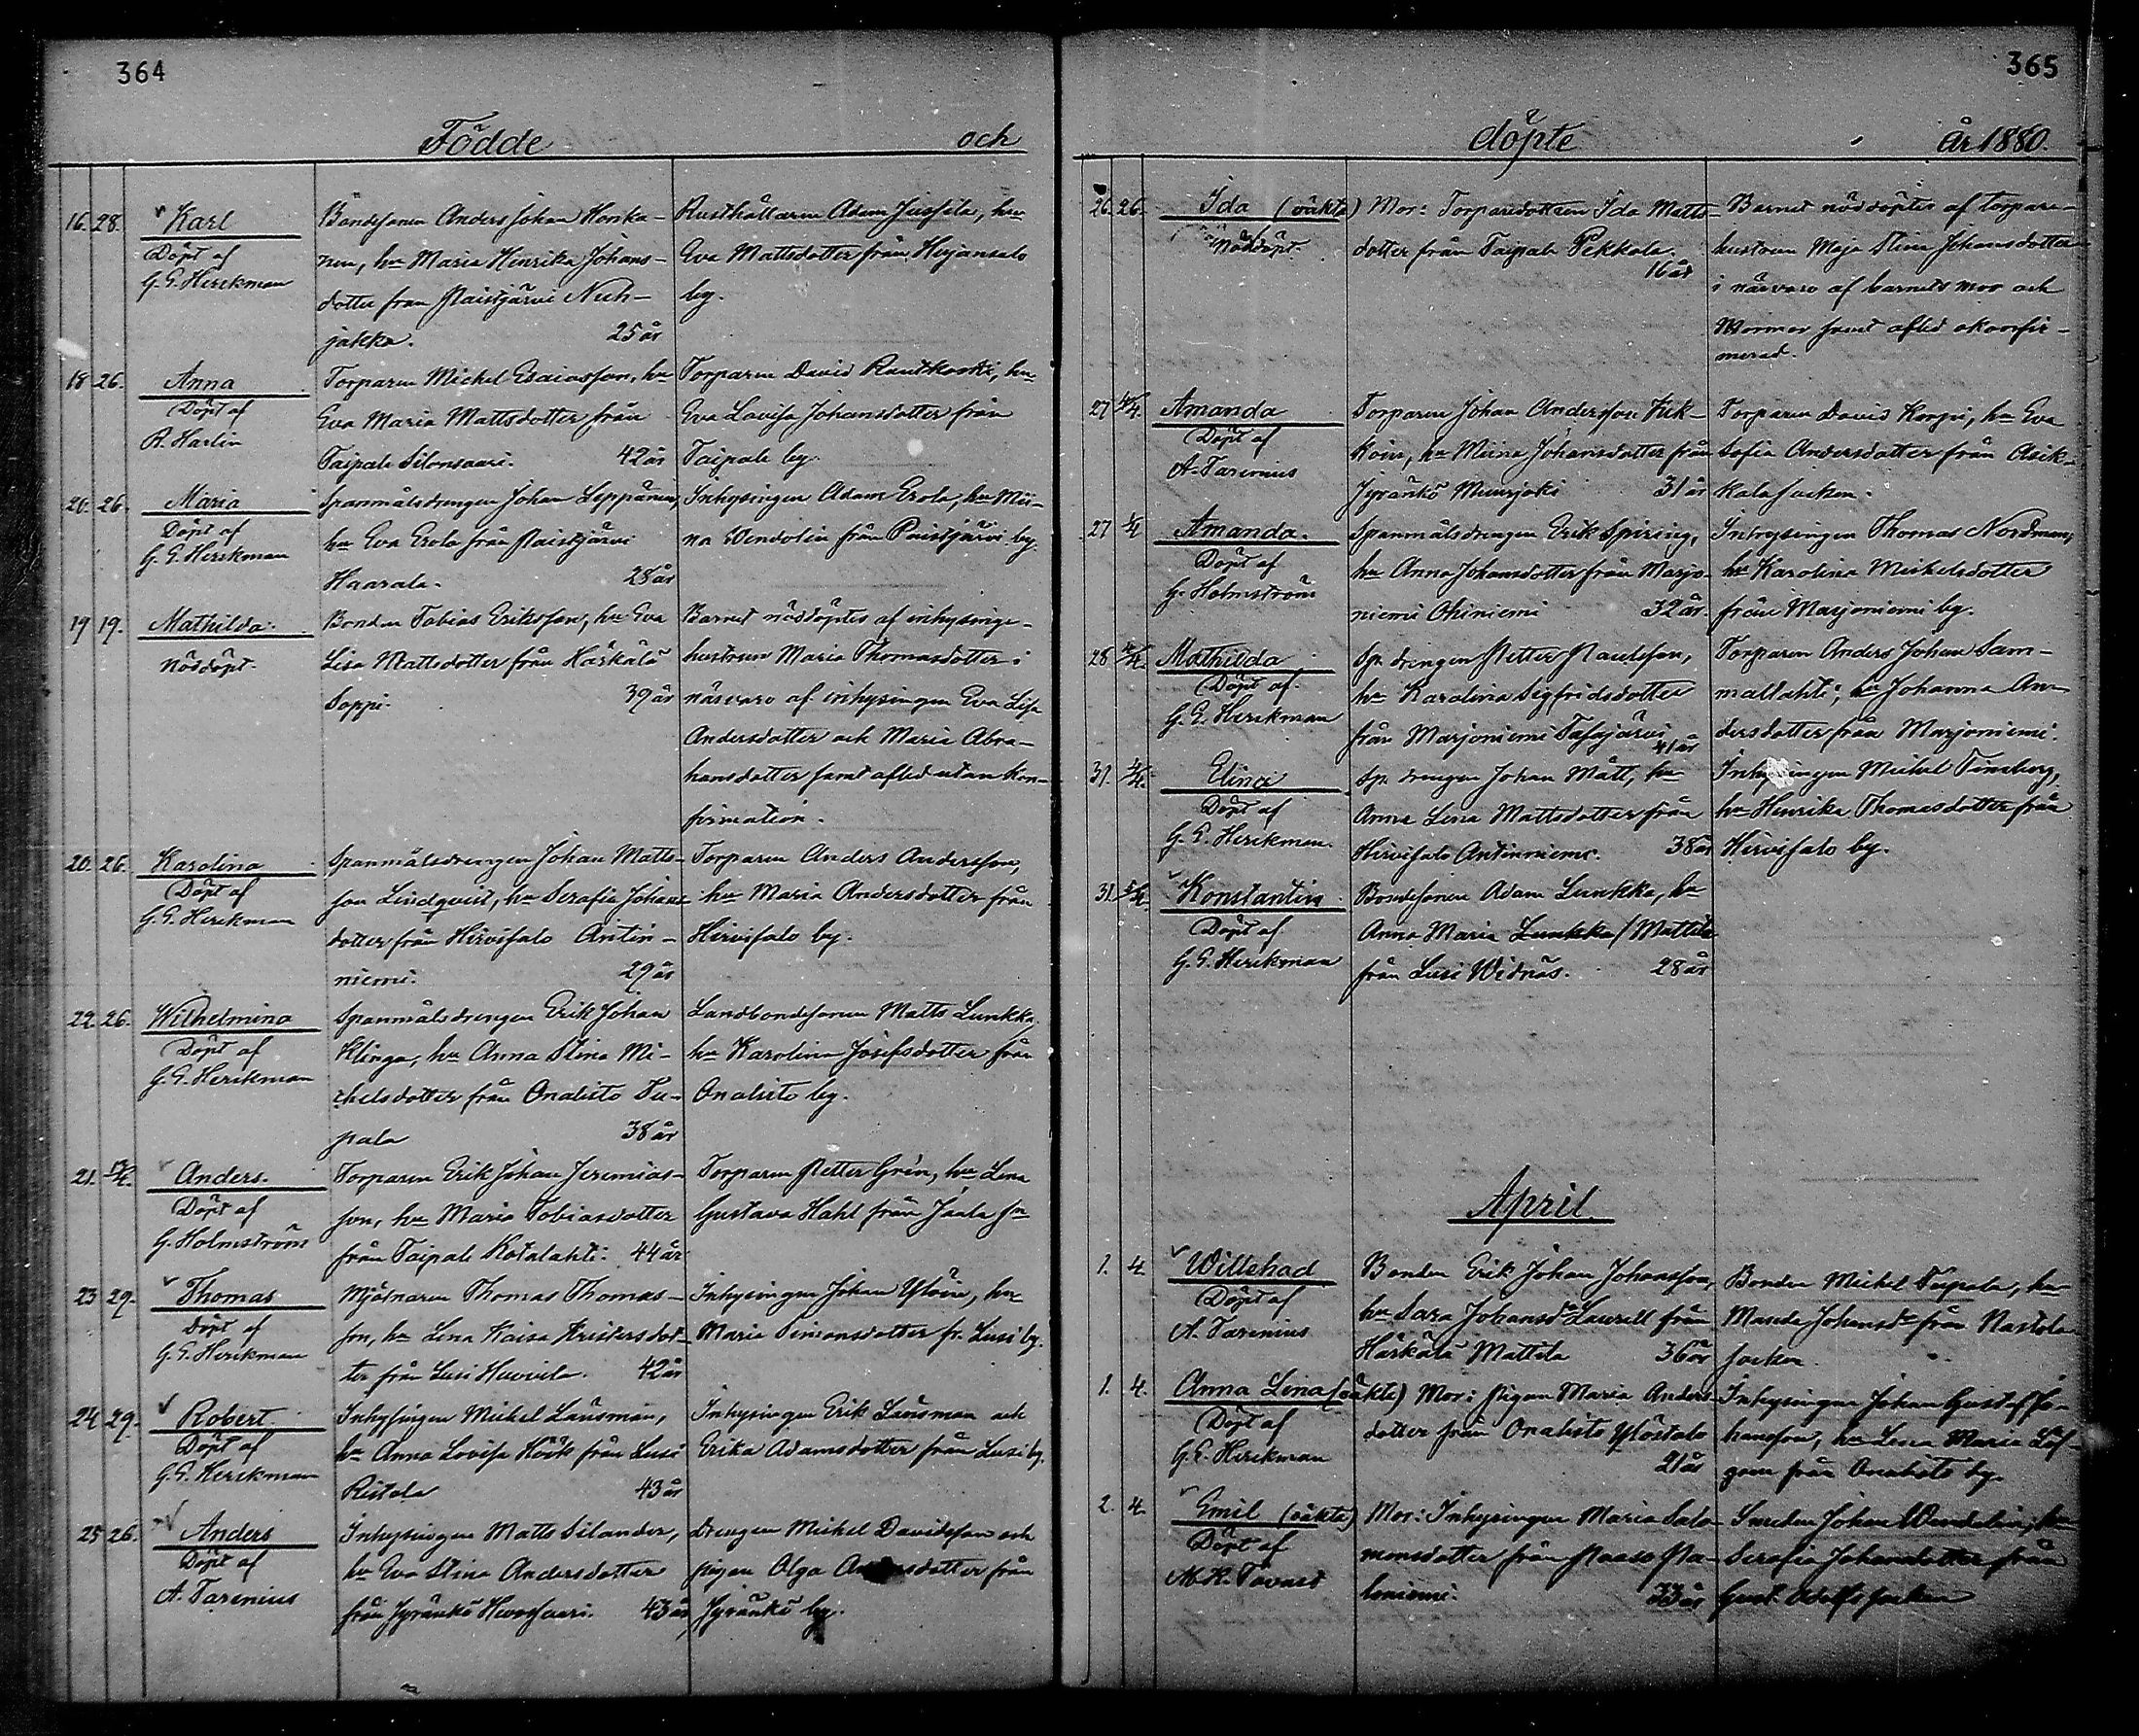 364
Födde och
16. 28. Karl
Döpt af
G. E. Herckman
Bondesonen Anders Johan Honka-
nen, hu Maria Henrika Johans-
dotter från Paistjärvi Nuh-
jakka. 25 år
Rusthållaren Adam Jussila, hu
Eva Mattsdotter från Heijansalo
by.
18 26. Anna
Döpt af
R. Harlin
Torparen Michel Esaiasson, hu
Eva Maria Mattsdotter från
Taipale Silonsaari. 42 år
Torparen David Rautkoski, hu
Eva Lovisa Johansdotter från
Taipale by.
20. 26. Maria
Döpt af
G. E. Herckman
Spanmålsdrengen Johan Leppänen,
hu Eva Erola från Paistjärvi
Haarala. 28 år
Inhysingen Adam Erola, hu Mii-
na Wendolin från Paistjärvi by.
19 19. Mathilda
Nöddöpt.
Bonden Tobias Eriksson, hu Eva
Lisa Mattsdotter från Härkälä
Soppi. 39 år
Barnet nöddöptes af inhysinge-
hustrun Maria Thomasdotter i
närvaro af inhysingen Eva Lisa
Andersdotter och Maria Abra-
hansdotter samt afled utan kon-
firmation.
20. 26. Karolina
Döpt af
G. E. Herckman
Spanmålsdrengen Johan Matts-
son Lindqvist, hu Serafia Johans-
dotter från Hirvisalo Antin-
niemi. 29 år
Torparen Anders Andersson,
hu Maria Andersdotter från
Hirvisalo by.
22. 26. Wilhelmina
Döpt af
G. E. Herckman
Spanmålsdrengen Erik Johan
Klinga, hu Anna Stina Mi-
chelsdotter från Onalisto Su-
pala 38 år
Landbondesonen Matts Lunkka,
hu Karolina Josefsdotter från
Onalisto by.
21. Anders.
Döpt af
G. Holmström
Torparen Erik Johan Jeremias-
son, hu Maria Tobiasdotter
från Taipale Kotalahti. 44 år
Torparen Petter Grén, hu Lena
Gustava Hahl från Jaala sn
23 29. Thomas
Döpt af
G. E. Herckman
Mjölnaren Thomas Thomas-
son, hu Lena Kaisa Kristersdot-
ter från Lusi Huovila. 42 år
Inhysingen Johan Ylöin, hu
Maria Simonsdotter fr. Lusi by.
24 29. Robert
Döpt af
G. E. Herckman
Inhysingen Michel Länsman,
hu Anna Lovisa Höök från Lusi
Ristola 43 år
Inhysingen Erik Länsman och
Erika Adamsdotter från Lusi by.
25 26. Anders
Döpt af
A. Tarenius
Inhysingen Matts Silander,
hu Eva Stina Andersdotter
från Jyränkö Huossaari. 43 år
Drengen Michel Davidsson och
pigan Olga dotter från
Jyränkö by.
365
döpte år 1880.
26. 26. Ida (oäkta)
Nöddöpt.
Mor: Torparedottern Ida Matts-
dotter från Taipale Pekkola.
16 år
Barnet nöddöptes af torpare-
hustrun Maja Stina Johansdotter
i närvaro af barnets mor och
Mormor samt afled okonfir-
merad.
27 Amanda
Döpt af
A. Tarenius
Torparen Johan Andersson Kuk-
koin, hu Miina Johansdotter från
Jyränkö Muurjoki 31 år
Torparen David Korpi, hu Eva
Sofia Andersdotter från Asik-
kala socken.
27 Amanda.
Döpt af
G. Holmström
Spanmålsdrengen Erik Spiring,
hu Anna Johansdotter från Marjo-
niemi Ohiniemi 32 år.
Inhysingen Thomas Nordman,
hu Karolina Michelsdotter
från Marjoniemi by.
28 Mathilda
Döpt af
G. E. Herckman
Sp. drengen Petter Paulsson,
hu Karolina Sigfridsdotter
från Marjoniemi Tasajärvi
41 år
Torparen Anders Johan Sam-
mallahti, hu Johanna An-
dersdotter från Marjoniemi.
31. Elina
Döpt af
G. E. Herckman
Sp. drengen Johan Mått, hu
Anna Lena Mattsdotter från
Hirvisalo Antinniemi. 38 år
Inhysingen Michel Finsberg,
hu Henrika Thomasdotter från
Hirvisalo by.
31. Konstantin
Döpt af
G. E. Herckman
Bondesonen Adam Lunkka, hu
Anna Maria Lunkka / Mattila
från Lusi Widnäs. 28 år
April.
1. 4. Willehad
Döpt af
A. Tarenius
Bonden Erik Johan Johansson,
hu Sara Johansdr Laurell från
Härkälä Mattila 36 år
Bonden Michel Taipale, hu
Johansdr från Nastola
socken.
1. 4. Anna Lina (oäkta)
Döpt af
G. E. Herckman
Mor: Pigan Maria Anders-
dotter från Onalisto Ylöstalo
21 år
Inhysingen Johan Gustaf Jo-
hansson, hu Lena Maria Löf-
gren från Onalisto by.
2. 4. Emil (oäkta)
Döpt af
M. K. Tavast
Mor: Inhysingen Maria Salo-
monsdotter från Paaso Pa-
loniemi. 33 år
Smeden Johan Wendelin, hu
Serafia Johansdotter från
Gust. Adolfs socken